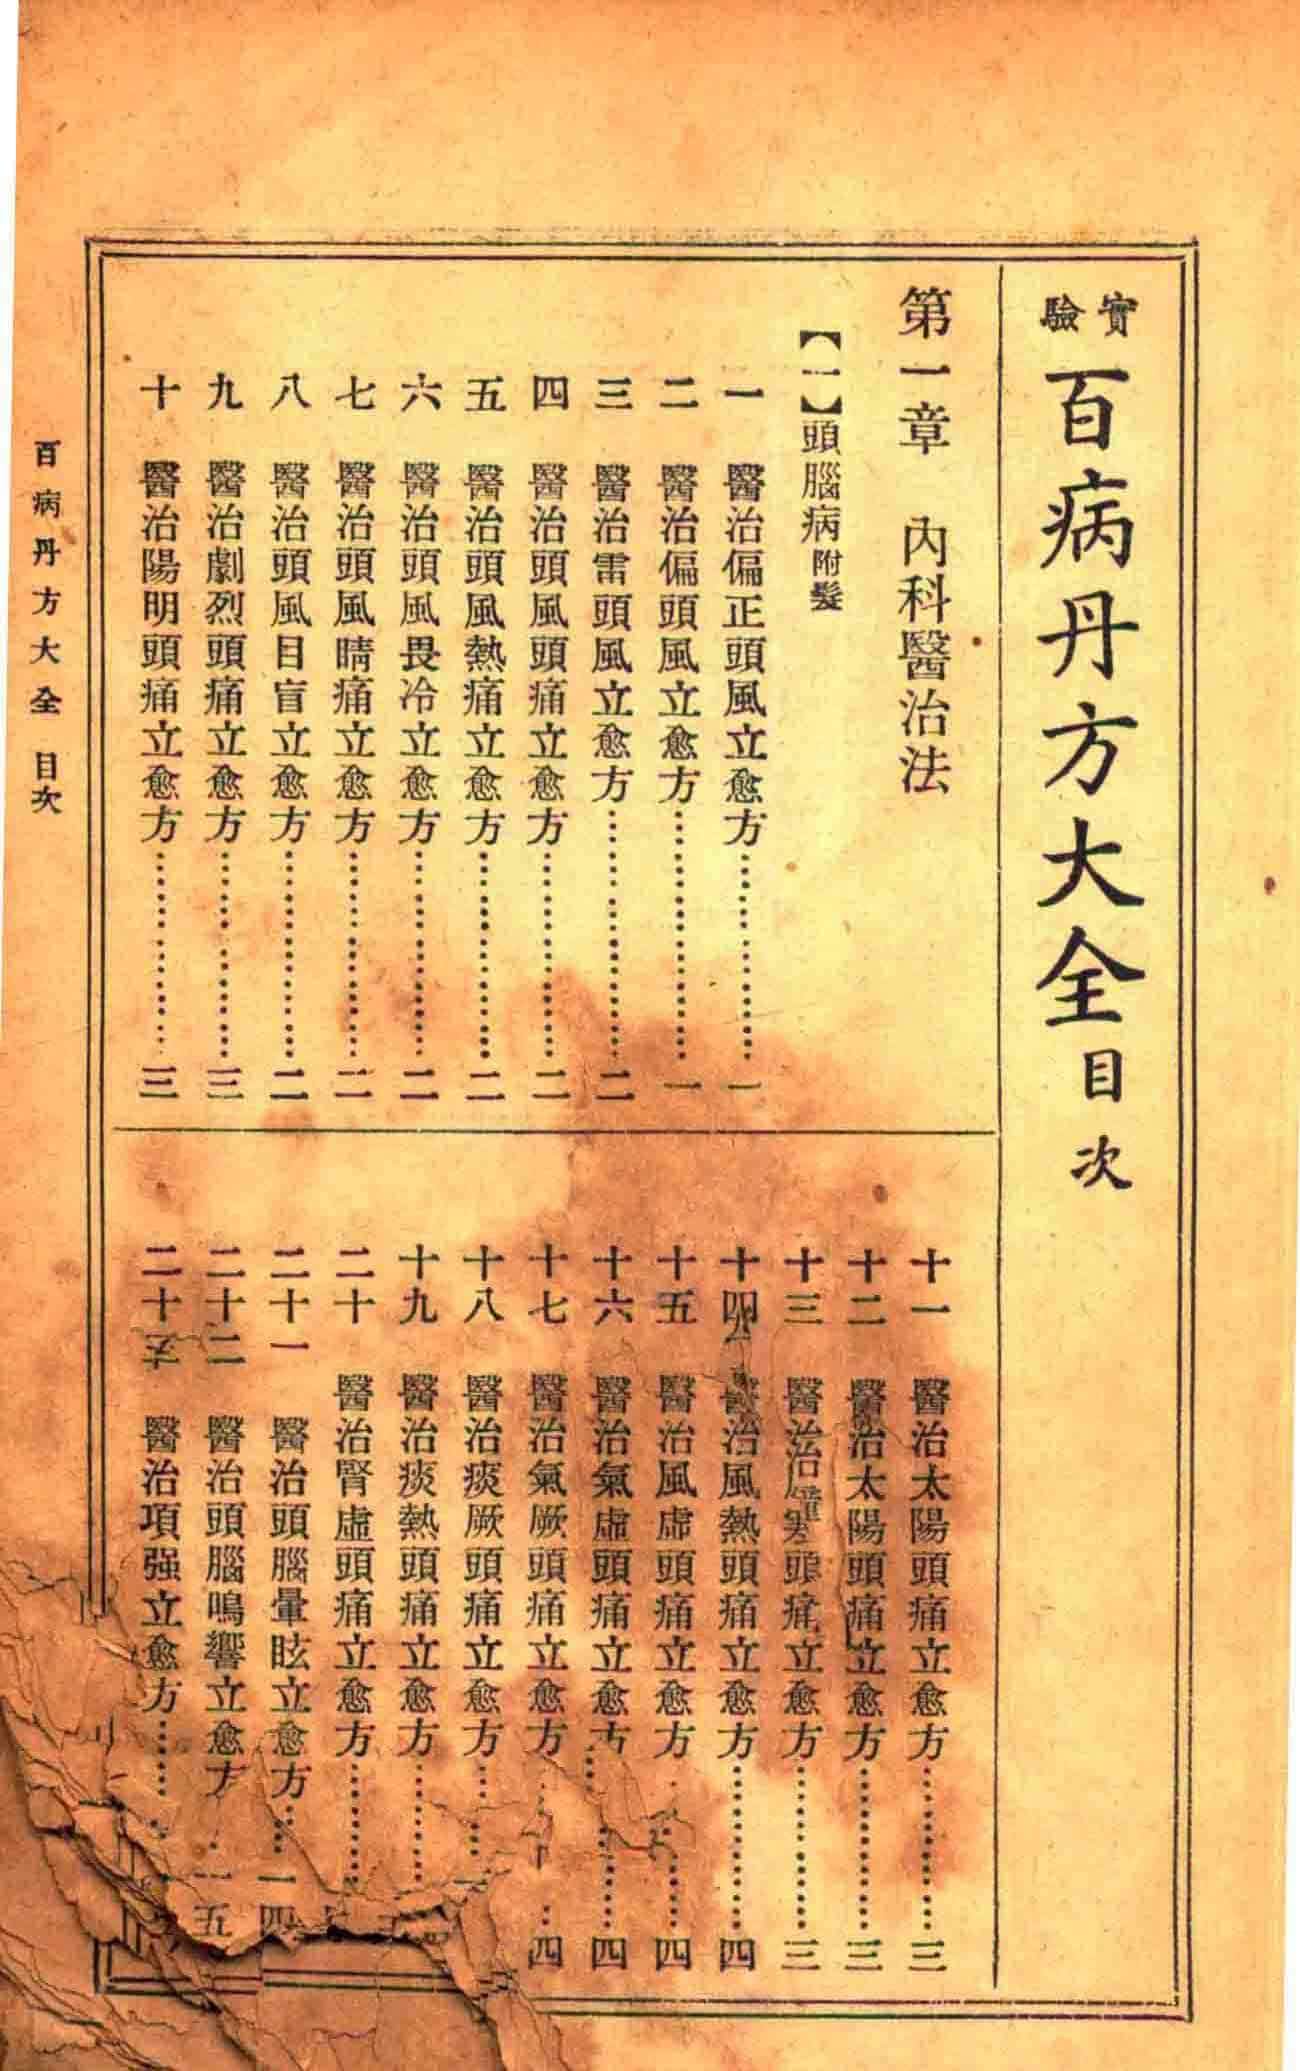 實驗百病丹方大全目次
第一章　內科醫治法
【一】頭腦病附髮
一　醫治偏正頭風立愈方…………一
二　醫治偏頭風立愈方…………一
三　醫治雷頭風立愈方…………二
四　醫治頭風頭痛立愈方…………二
五　醫治頭風熱痛立愈方…………二
六　醫治頭風畏冷立愈方…………二
七　醫治頭風睛痛立愈方…………二
八　醫治頭風目盲立愈方…………二
九　醫治劇烈頭痛立愈方…………三
十　醫治陽明頭痛立愈方…………三
十一　醫治太陽頭痛立愈方…………三
十二　醫治太陽頭痛立愈方…………三
十三　醫治頭痛立愈方…………三
十四　醫治風熱頭痛立愈方…………四
十五　醫治風虛頭痛立愈方…………四
十六　醫治氣虛頭痛立愈方…………四
十七　醫治氣厥頭痛立愈方…………四
十八　醫治痰厥頭痛立愈方…………
十九　醫治痰熱頭痛立愈方…………
二十　醫治腎虛頭痛立愈方…………
二十一　醫治頭腦暈眩立愈方…………
二十二　醫治頭腦鳴響立愈方…………五
二十　醫治項强立愈方…………
百病丹方大全　目次